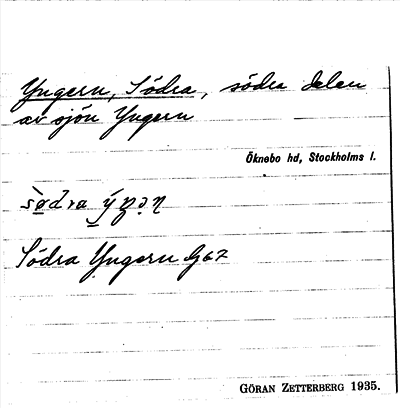 Yngern, Södra, södra delen
av sjön Yngern
Öknebo hd, Stockholms l.
Södra Yngern
GÖRAN ZETTERBERG 1935.